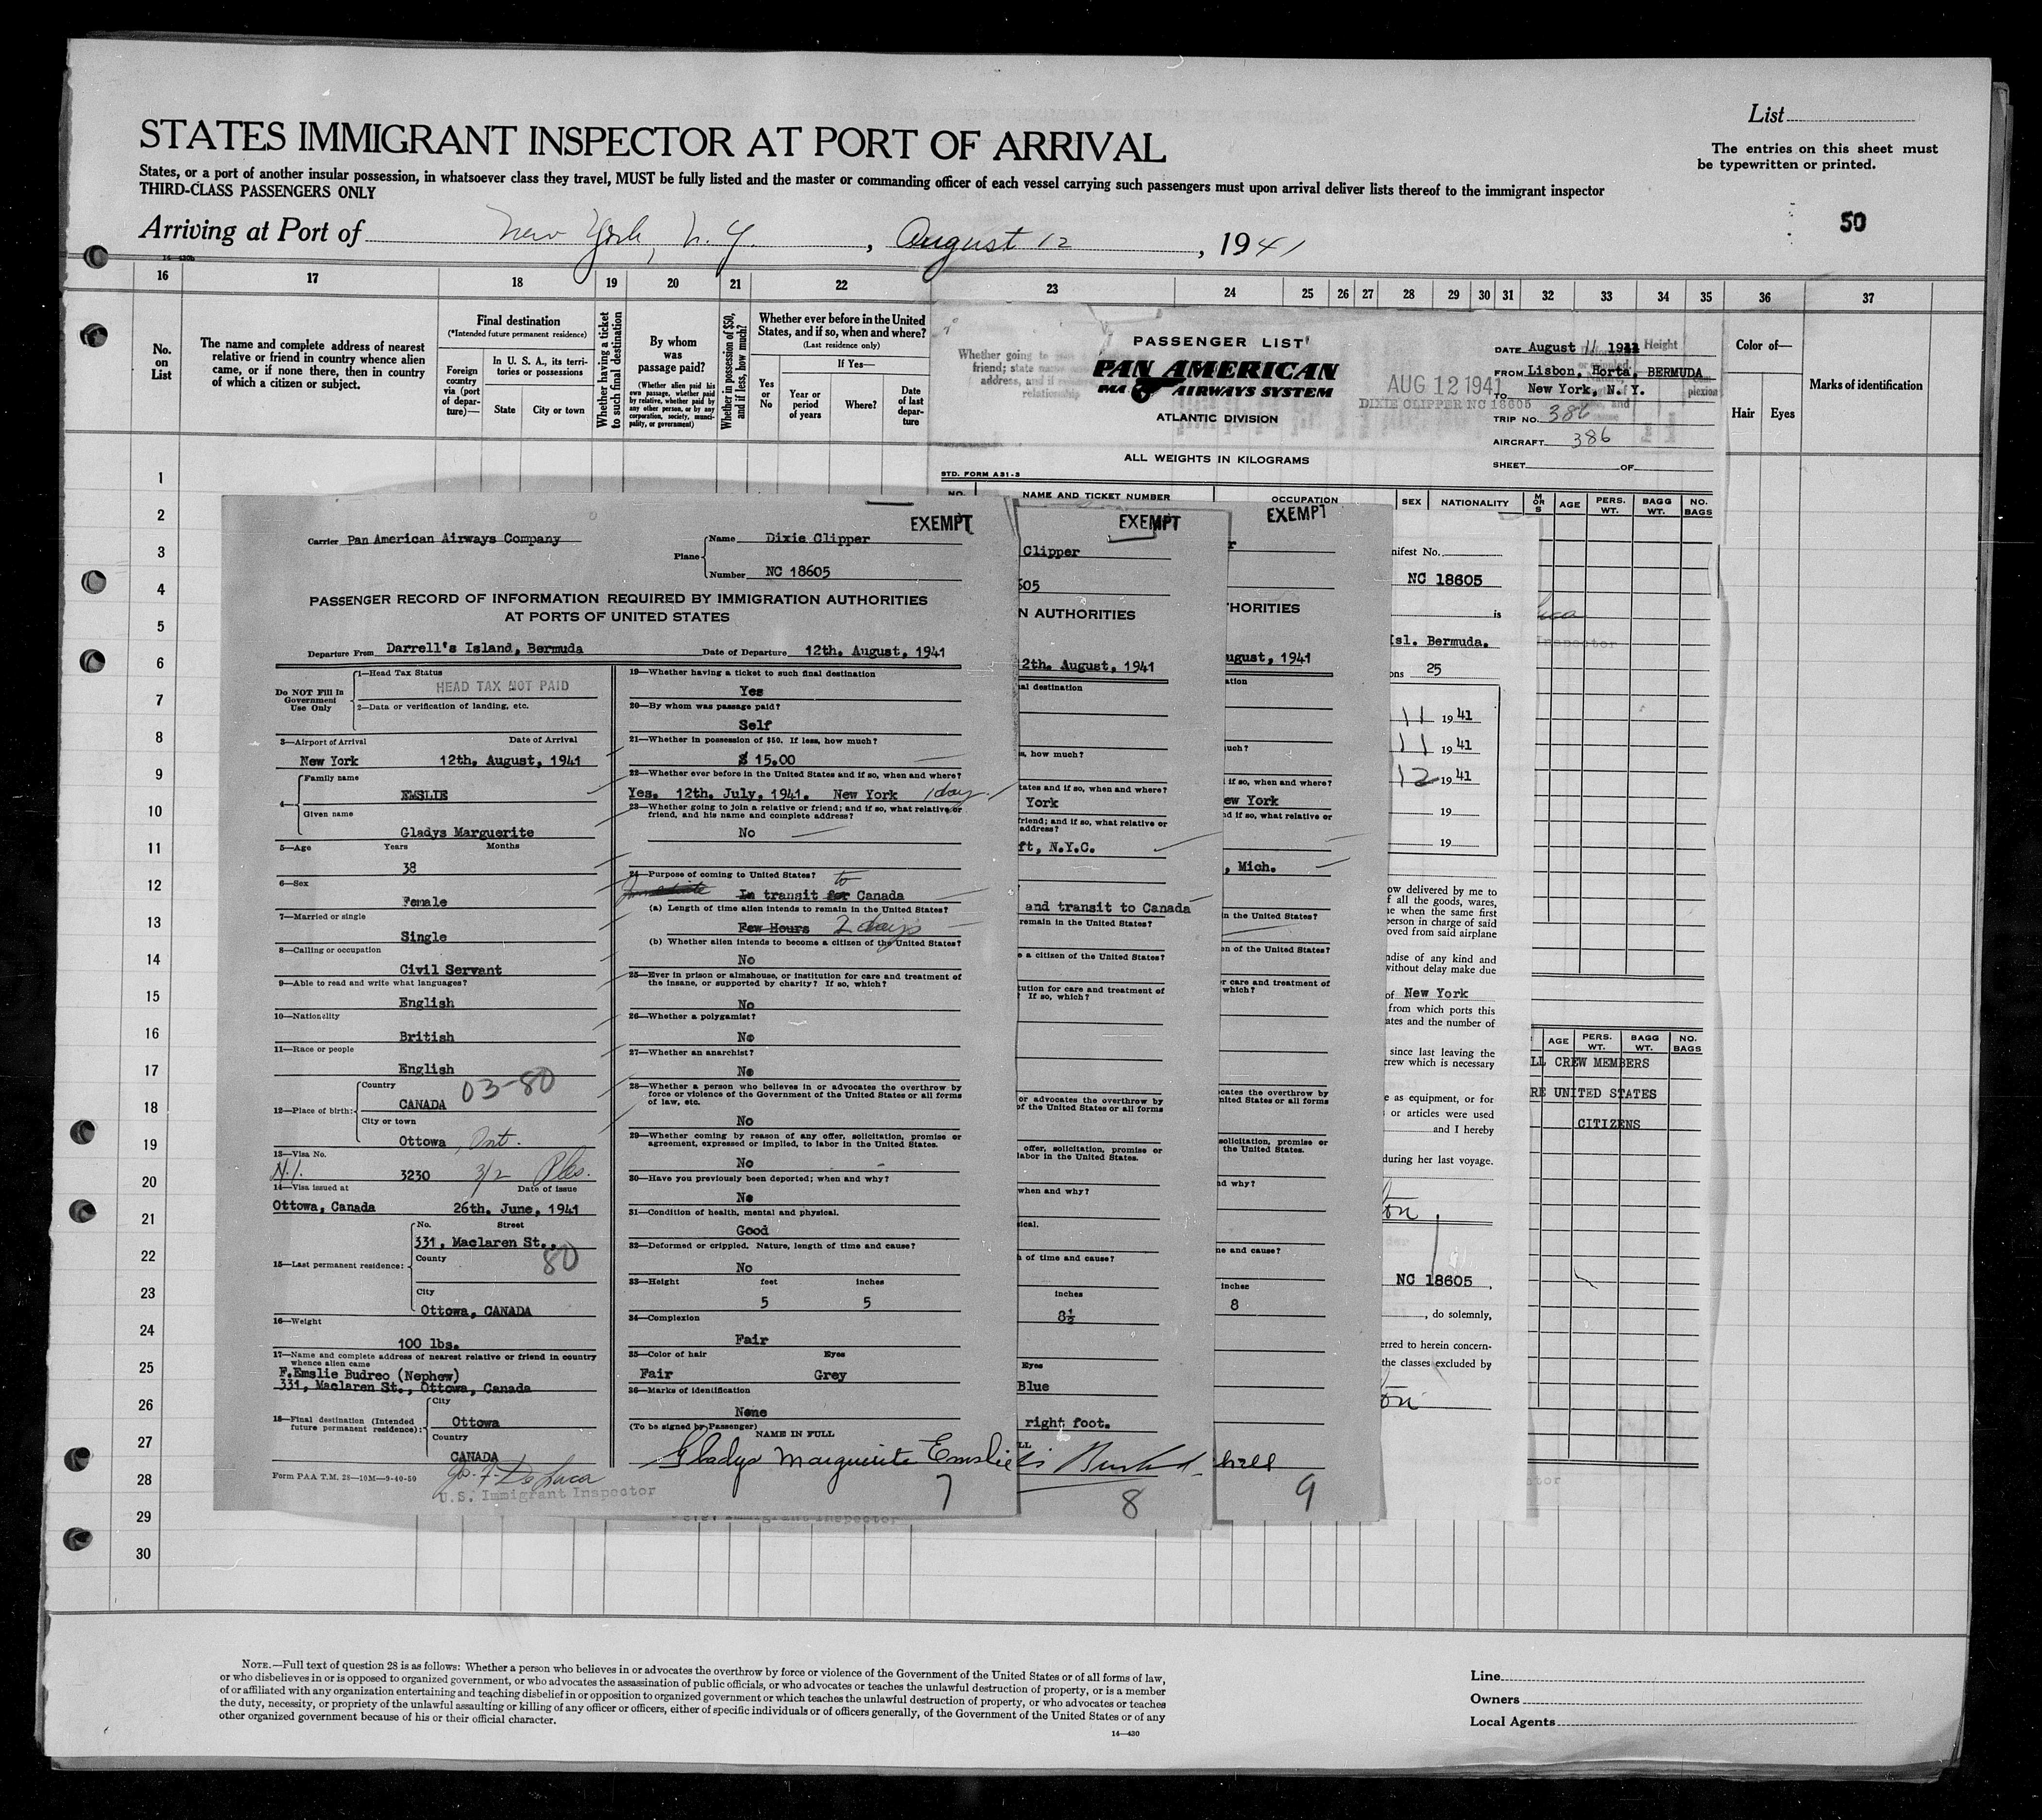 STATES IMMIGRANT INSPECTOR AT PORT OF ARRIVAL
States, or a port of another insular possession, in whatsoever class they travel, MUST be fully listed and the master or commanding officer of each vessel carrying such passengers must upon arrival deliver lists thereof to the immigrant inspector
THIRD-CLASS PASSENGERS ONLY
List
The entries on this sheet must
be typewritten or printed.
50
Arriving at Port of New York, N.Y. , August 12 , 1941
16 17 18 19 20 21 22 23 24 25 26 27 28 29 30 31 32 33 34 35 36 37
No.
on
List
The name and complete address of nearest
relative or friend in country whence alien
came, or if none there, then in country
of which a citizen or subject.
Final destination
(*Intended future permanent residence)
Foreign
country
via (port
of depar-
ture)—
In U. S. A., its terri-
tories or possessions
State City or town
Whether having a ticket
to such final destination
By whom
was
passage paid?
(Whether alien paid his
own passage, whether paid
by relative, whether paid by
any other person, or by any
corporation, society, munici-
pality, or government)
Whether in possession of $50,
and if less, how much?
Whether ever before in the United
States, and if so, when and where?
(Last residence only)
Yes
or
No
If Yes—
Year or
period
of years
Where?
Date
of last
depar-
ture
Whether going to
friend; state
address, and if
relationship
Height
Color of—
Hair Eyes
Marks of identification
PASSENGER LIST
PAN AMERICAN
AIRWAYS SYSTEM
ATLANTIC DIVISION
ALL WEIGHTS IN KILOGRAMS
AUG 12 1941
DIXIE CLIPPER NC 18605
DATE August 11 1941
FROM Lisbon, Horta, BERMUDA
TO New York, N. Y.
TRIP NO. 386
AIRCRAFT 386
SHEET OF
STD. FORM A31-3
NO. NAME AND TICKET NUMBER OCCUPATION SEX NATIONALITY M OR S AGE PERS. WT. BAGG WT. NO. BAGS
1
2
3
4
5
6
7
8
9
10
11
12
13
14
15
16
17
18
19
20
21
22
23
24
25
26
27
28
29
30
EXEMPT
Carrier Pan American Airways Company
Plane Name Dixie Clipper
Number NC 18605
PASSENGER RECORD OF INFORMATION REQUIRED BY IMMIGRATION AUTHORITIES
AT PORTS OF UNITED STATES
Departure From Darrell's Island, Bermuda Date of Departure 12th. August, 1941
Do NOT Fill In
Government
Use Only
1—Head Tax Status
HEAD TAX NOT PAID
2—Data or verification of landing, etc.
3—Airport of Arrival Date of Arrival
New York 12th. August, 1941
4— Family name
EMSLIE
Given name
Gladys Marguerite
5—Age Years Months
38
6—Sex
Female
7—Married or single
Single
8—Calling or occupation
Civil Servant
9—Able to read and write what languages?
English
10—Nationality
British
11—Race or people
English
03-80
12—Place of birth: Country
CANADA
City or town
Ottowa, Ont.
13—Visa No.
3230 3/2
14—Visa issued at Date of issue
Ottowa, Canada 26th. June, 1941
15—Last permanent residence: No. Street
331, Maclaren St.,
County
80
City
Ottowa, CANADA
16—Weight
100 lbs.
17—Name and complete address of nearest relative or friend in country
whence alien came
F.Emslie Budreo (Nephew)
331, Maclaren St., Ottowa, Canada
18—Final destination (Intended
future permanent residence): City
Ottowa
Country
CANADA
Form PAA T.M. 28—10M—9-40-50
De Luca
U.S. Immigrant Inspector
19—Whether having a ticket to such final destination
Yes
20—By whom was passage paid?
Self
21—Whether in possession of $50. If less, how much?
$ 15.00
22—Whether ever before in the United States and if so, when and where?
Yes. 12th. July, 1941. New York 1 day
23—Whether going to join a relative or friend; and if so, what relative or
friend, and his name and complete address?
No
24—Purpose of coming to United States?
In transit for to Canada
(a) Length of time alien intends to remain in the United States?
Few Hours 2 days
(b) Whether alien intends to become a citizen of the United States?
No
25—Ever in prison or almshouse, or institution for care and treatment of
the insane, or supported by charity? If so, which?
No
26—Whether a polygamist?
No
27—Whether an anarchist?
No
28—Whether a person who believes in or advocates the overthrow by
force or violence of the Government of the United States or all forms
of law, etc.
No
29—Whether coming by reason of any offer, solicitation, promise or
agreement, expressed or implied, to labor in the United States.
No
30—Have you previously been deported; when and why?
No
31—Condition of health, mental and physical.
Good
32—Deformed or crippled. Nature, length of time and cause?
No
33—Height feet inches
5 5
34—Complexion
Fair
35—Color of hair Eyes
Fair Grey
36—Marks of identification
None
(To be signed by Passenger)
NAME IN FULL
Gladys Marguerite Emslie
7
EXEMPT
Clipper
605
N AUTHORITIES
2th. August, 1941
al destination
s, how much?
tates and if so, when and where?
York
friend; and if so, what relative or
address?
ft, N.Y.C.
and transit to Canada
remain in the United States?
e a citizen of the United States?
tution for care and treatment of
If so, which?
or advocates the overthrow by
of the United States or all forms
offer, solicitation, promise or
labor in the United States.
when and why?
ical.
h of time and cause?
inches
8½
Eyes
Blue
right foot.
LL
8
EXEMPT
r
THORITIES
ugust, 1941
ation
uch?
if so, when and where?
ew York
nd if so, what relative or
, Mich.
in the United States?
en of the United States?
r care and treatment of
which?
cates the overthrow by
nited States or all forms
solicitation, promise or
the United States.
nd why?
ne and cause?
inches
8
hall
9
nifest No.
NC 18605
is
Isl. Bermuda.
ons 25
11 19 41
11 19 41
12 19 41
19
19
ow delivered by me to
f all the goods, wares,
e when the same first
person in charge of said
oved from said airplane
ndise of any kind and
without delay make due
of New York
from which ports this
ates and the number of
since last leaving the
crew which is necessary
e as equipment, or for
or articles were used
and I hereby
during her last voyage.
ton
NC 18605 ,
, do solemnly,
erred to herein concern-
the classes excluded by
ton
Inspector
AGE PERS. WT. BAGG WT. NO. BAGS
LL CREW MEMBERS
RE UNITED STATES
CITIZENS
NOTE.—Full text of question 28 is as follows: Whether a person who believes in or advocates the overthrow by force or violence of the Government of the United States or of all forms of law,
or who disbelieves in or is opposed to organized government, or who advocates the assassination of public officials, or who advocates or teaches the unlawful destruction of property, or is a member
of or affiliated with any organization entertaining and teaching disbelief in or opposition to organized government or which teaches the unlawful destruction of property, or who advocates or teaches
the duty, necessity, or propriety of the unlawful assaulting or killing of any officer or officers, either of specific individuals or of officers generally, of the Government of the United States or of any
other organized government because of his or their official character.
14—430
Line
Owners
Local Agents